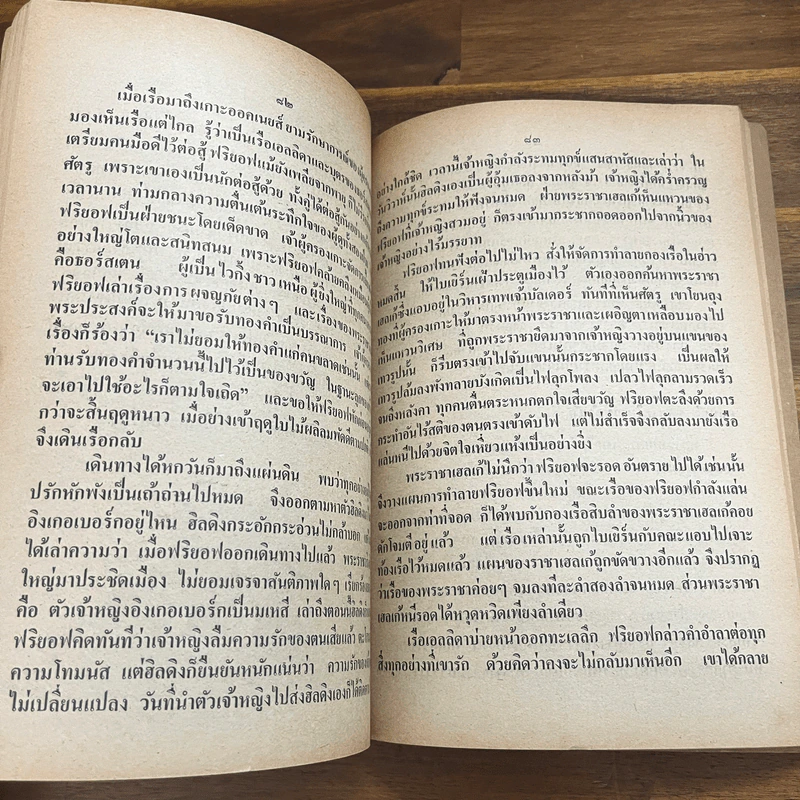 ๘๒
เมื่อเรือมาถึงเกาะออคเนยส์ ยามรักษาการณ์
มองเห็นเรือแต่ไกล รู้ว่าเป็นเรือเอลลิดาและบุตรของ
เตรียมคนมือดีไว้ต่อสู้ ฟริยอฟแม้ยังเพลียจากพายุ
ศัตรู เพราะเขาเองเป็นนักต่อสู้ด้วย ทั้งคู่ได้ต่อสู้กัน
เวลานาน ท่ามกลางความตื่นเต้นระทึกใจของผู้ดู
ฟริยอฟเป็นฝ่ายชนะโดยเด็ดขาด เจ้าผู้ครองเกาะจัด
อย่างใหญ่โตและสนิทสนม เพราะฟริยอฟคล้ายคลึง
คือธอร์สเตน ผู้เป็นไวกิ้งชาวเหนือผู้ยิ่งใหญ่
ฟริยอฟเล่าเรื่องการผจญภัยต่างๆ และเรื่องของ
พระประสงค์จะให้มาขอรับทองคำเป็นบรรณาการ
เรื่องก็ร้องว่า “เราไม่ยอมให้ทองคำแก่คนขลาดเช่นนั้น
ท่านรับทองคำจำนวนนี้ไปไว้เป็นของขวัญ ในฐานะ
จะเอาไปใช้อะไรก็ตามใจเถิด” และขอให้ฟริยอฟพัก
กว่าจะสิ้นฤดูหนาว เมื่อย่างเข้าฤดูใบไม้ผลิลมพัดดี
จึงเดินเรือกลับ
เดินทางได้หกวันก็มาถึงแผ่นดิน พบว่าทุกอย่าง
ปรักหักพังเป็นเถ้าถ่านไปหมด จึงออกตามหาตัวฮิลดิง
อิงเกอเบอร์กอยู่ไหน ฮิลดิงกระอักกระอ่วนไม่กล้าบอก
ได้เล่าความว่า เมื่อฟริยอฟออกเดินทางไปแล้ว
ใหญ่มาประชิดเมือง ไม่ยอมเจรจาสันติภาพใดๆ
คือ ตัวเจ้าหญิงอิงเกอเบอร์กเป็นมเหสี เล่าถึงตอนนี้
ฟริยอฟคิดทันทีว่าเจ้าหญิงลืมความรักของตนเสียแล้ว
ความโทมนัส แต่ฮิลดิงก็ยืนยันหนักแน่นว่า ความรักของ
ไม่เปลี่ยนแปลง วันที่นำตัวเจ้าหญิงไปส่งฮิลดิงเองก็ได้
๘๓
อย่างใกล้ชิด เวลานี้เจ้าหญิงกำลังระทมทุกข์แสนสาหัสและเล่าว่า ใน
วันวิวาห์นั้นฮิลดิงเองเป็นผู้อุ้มเธอลงจากหลังม้า เจ้าหญิงได้คร่ำครวญ
ถึงความทุกข์ระทมให้ฟังจนหมด ฝ่ายพระราชาเฮลเก้เห็นแหวนของ
ฟริยอฟที่เจ้าหญิงสวมอยู่ ก็ตรงเข้ามากระชากถอดออกไปจากนิ้วของ
เจ้าหญิงอย่างไร้มรรยาท
ฟริยอฟทนฟังต่อไปไม่ไหว สั่งให้จัดการทำลายกองเรือในอ่าว
หมดสิ้น ให้ไบเยิร์นเฝ้าประตูเมืองไว้ ตัวเองออกค้นหาพระราชา
เฮลเก้ซึ่งแอบอยู่ในวิหารเทพเจ้าบัลเดอร์ ทันทีที่เห็นศัตรู เขาโยนถุง
ทองที่ผู้ครองเกาะให้มาตรงหน้าพระราชาและเผอิญตาเหลือบมองไป
เห็นแหวนวิเศษ ที่ถูกพระราชายึดมาจากเจ้าหญิงวางอยู่บนแขนของ
เทวรูปนั้น ก็รีบตรงเข้าไปจับแขนนั้นกระชากโดยแรง เป็นผลให้
เทวรูปล้มลงพังทลายบังเกิดเป็นไฟลุกโพลง เปลวไฟลุกลามรวดเร็ว
จนถึงหลังคา ทุกคนตื่นตระหนกตกใจเสียขวัญ ฟริยอฟตะลึงด้วยการ
กระทำอันไร้สติของตนตรงเข้าดับไฟ แต่ไม่สำเร็จจึงกลับลงมายังเรือ
แล่นหนีไปด้วยจิตใจเหี่ยวแห้งเป็นอย่างยิ่ง
พระราชาเฮลเก้ไม่นึกว่าฟริยอฟจะรอดอันตรายไปได้เช่นนั้น
จึงวางแผนการทำลายฟริยอฟขึ้นใหม่ ขณะเรือของฟริยอฟกำลังแล่น
จะออกจากท่าที่จอด ก็ได้พบกับกองเรือสิบลำของพระราชาเฮลเก้คอย
ดักโจมตีอยู่แล้ว แต่เรือเหล่านั้นถูกไบเยิร์นกับคณะแอบไปเจาะ
ท้องเรือไว้หมดแล้ว แผนของราชาเฮลเก้ถูกขัดขวางอีกแล้ว จึงปรากฏ
ว่าเรือของพระราชาค่อยๆ จมลงทีละลำสองลำจนหมด ส่วนพระราชา
เฮลเก้หนีรอดได้หวุดหวิดเพียงลำเดียว
เรือเอลลิดาบ่ายหน้าออกทะเลลึก ฟริยอฟกล่าวคำอำลาต่อทุก
สิ่งทุกอย่างที่เขารัก ด้วยคิดว่าคงจะไม่กลับมาเห็นอีก เขาได้กลาย